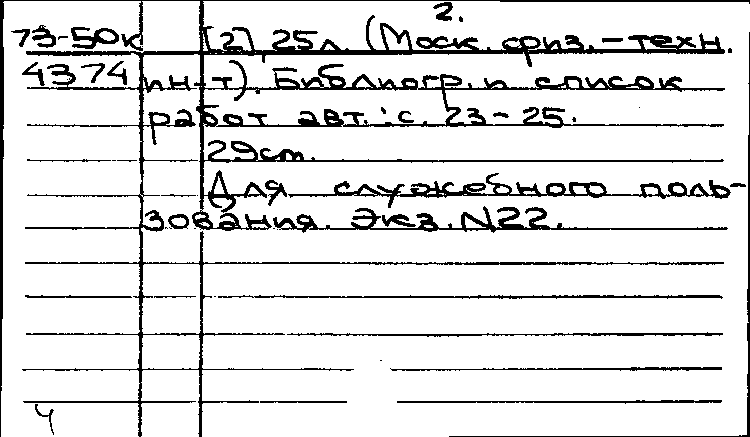 2.
73-50к [2], 25л. (Моск. физ.-техн.
4374 ин-т). Библиогр. и список
работ авт.: с. 23-25.
29см.
Для служебного поль-
зования. Экз. N22.
4